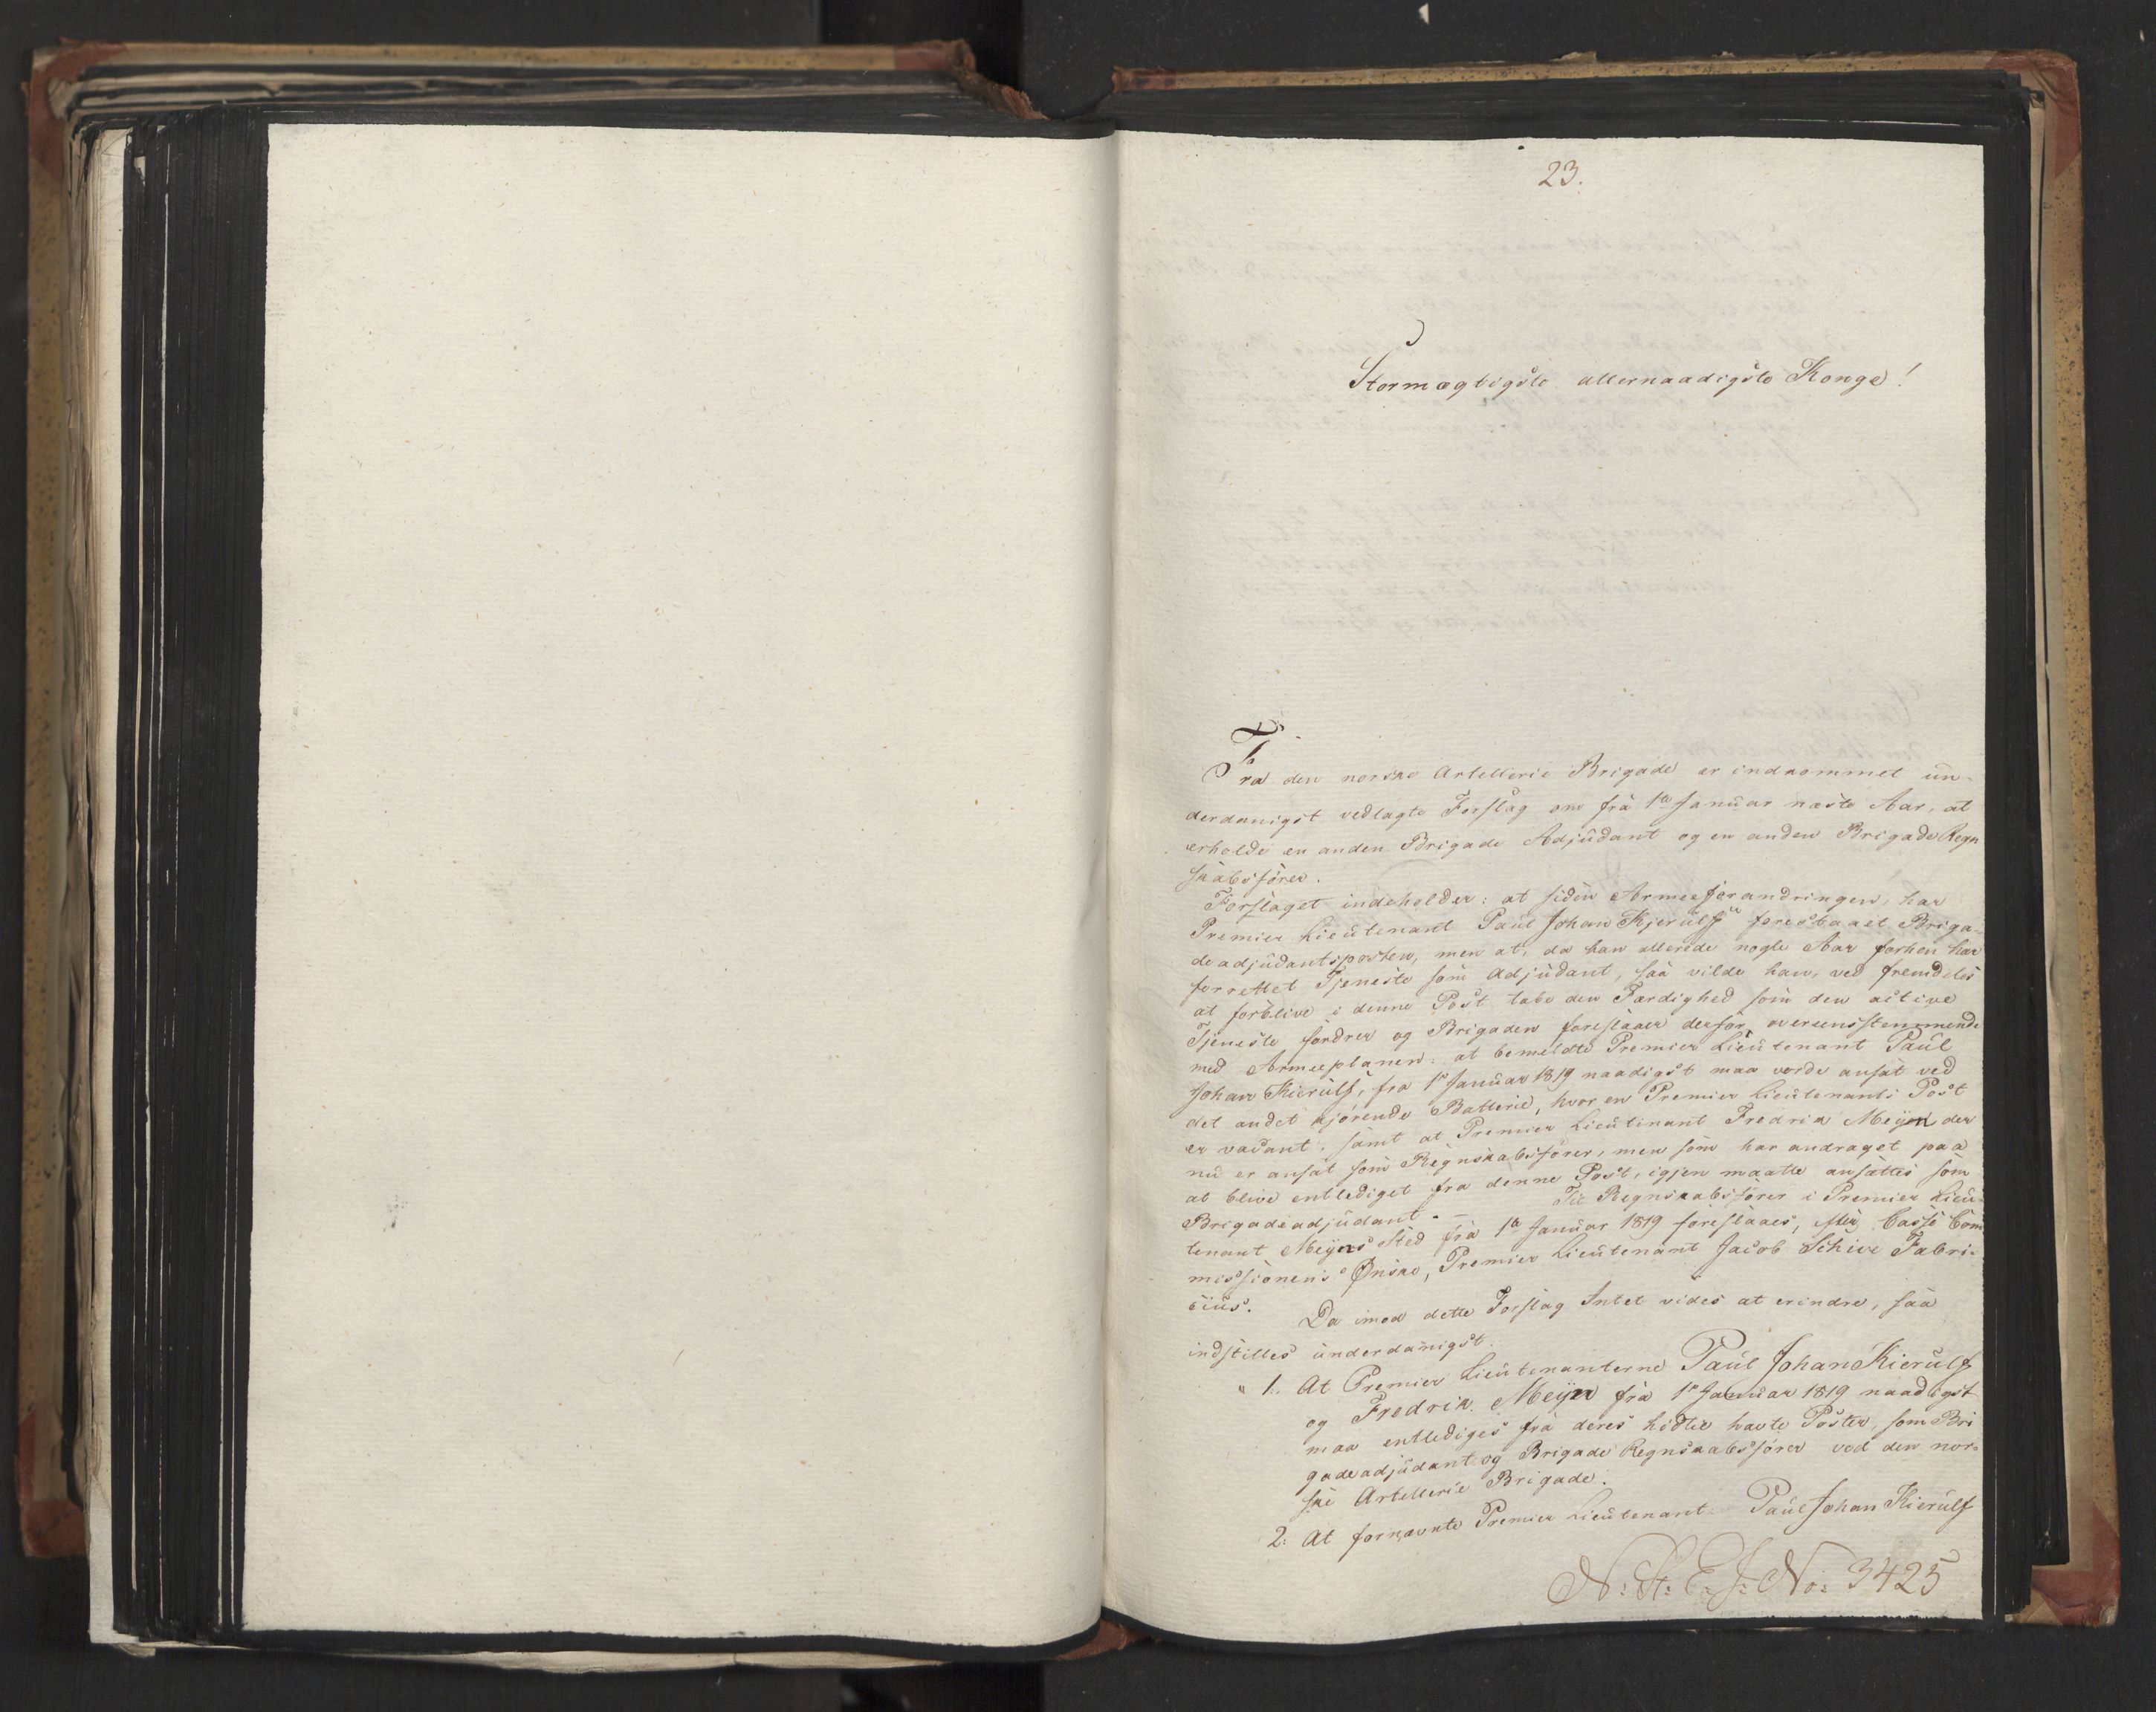 23.
Stormægtigste allernaadigste Konge!
Fra den norske Artillerie Brigade er indkommet un-
derdanigst vedlagte Forslag om fra 1ste Januar næste Aar, at
erholde en anden Brigade Adjudant og en anden Brigade Regn
skabsfører.
Forslaget indeholder: at siden Armeeforandringen, har
Premier Lieutenant Paul Johan Kjerulf forestaaet Briga-
deadjudantsposten, men at, da han allerede nogle Aar forhen har
forrettet Tjeneste som Adjudant, saa vilde han, ved fremdeles
at forblive i denne Post tabe den Færdighed som den active
Tjeneste fordrer og Brigaden foreslaaer derfor, overensstemmende
med Armeeplanen: at bemeldte Premier Lieutenant Paul
Johan Kierulf, fra 1ste Januar 1819 naadigst maa vorde ansat ved
det andet kjørende Batterie, hvor en Premier Lieutenants Post
er vacant, samt at Premier Lieutinant Fredrik Meyn der
nu er ansat som Regnskabsfører, men som har andraget paa
at blive entlediget fra denne Post, igjen maatte ansættes som
Brigadeadjudant. — Til Regnskabsfører i Premier Lieu-
tenant Meyns Sted fra 1ste Januar 1819 foreslaaes, efter Casse Com
missionens Ønske, Premier Lieutenant Jacob Schive Fabri-
cius.
Da imod dette Forslag Intet vides at erindre, saa
indstilles underdanigst:
" 1. At Premier Lieutenanterne Paul Johan Kierulf
og Fredrik Meyn fra 1ste Januar 1819 naadigst
maa entlediges fra deres hidtil havte Poster, som Bri
gadeadjudant og Brigade Regnskabsfører ved den nor-
ske Artillerie Brigade.
2. At fornævnte Premier Lieutenant Paul Johan Kierulf
N: St: E: J: No: 3425